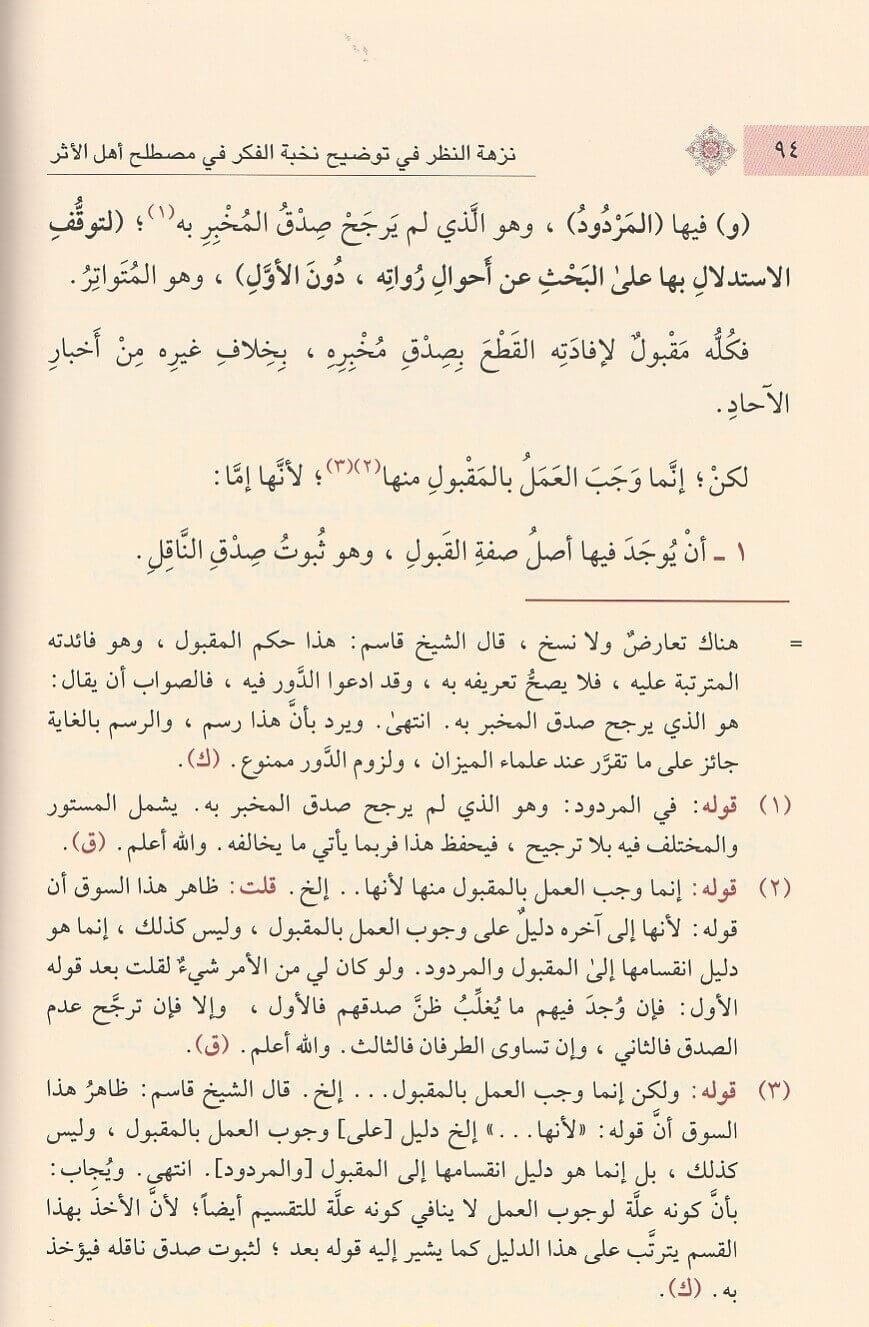 ٩٤
نزهة النظر في توضيح نخبة الفكر في مصطلح أهل الأثر
(و) فيها (المَرْدُودُ) ، وهو الَّذي لم يَرجَحْ صِدْقُ المُخْبِرِ به(١)؛ (لتوقُّفِ
الاستدلالِ بها علىٰ البَحْثِ عن أَحوالِ رُواتِه ، دُونَ الأوَّلِ) ، وهو المُتَواتِرُ.
فكُلُّه مَقْبولٌ لإفادَتِه القَطْعَ بِصِدْقِ مُخْبِرِهِ ، بِخِلافِ غيرِه مِنْ أَخبارِ
الآحادِ.
لكنْ؛ إنَّما وَجَبَ العَمَلُ بالمَقْبولِ منها(٢)(٣)؛ لأنَّها إمَّا:
١ - أنْ يُوجَدَ فيها أصلُ صفةِ القَبولِ ، وهو ثُبوتُ صِدْقِ النَّاقِلِ.
= هناك تعارضٌ ولا نسخ ، قال الشيخ قاسم: هذا حكم المقبول ، وهو فائدته
المترتبة عليه ، فلا يصحُّ تعريفه به ، وقد ادعوا الدَّور فيه ، فالصواب أن يقال:
هو الذي يرجح صدق المخبر به. انتهىٰ. ويرد بأنَّ هذا رسم ، والرسم بالغاية
جائز على ما تقرَّر عند علماء الميزان ، ولزوم الدَّور ممنوع. (ك).
(١) قوله: في المردود: وهو الذي لم يرجح صدق المخبر به. يشمل المستور
والمختلف فيه بلا ترجيح ، فيحفظ هذا فربما يأتي ما يخالفه. والله أعلم. (ق).
(٢) قوله: إنما وجب العمل بالمقبول منها لأنها.. إلخ. قلت: ظاهر هذا السوق أن
قوله: لأنها إلى آخره دليلٌ على وجوب العمل بالمقبول ، وليس كذلك ، إنما هو
دليل انقسامها إلىٰ المقبول والمردود. ولو كان لي من الأمر شيءٌ لقلت بعد قوله
الأول: فإن وُجدَ فيهم ما يُغلِّبُ ظنَّ صدقهم فالأول ، وإلا فإن ترجَّح عدم
الصدق فالثاني ، وإن تساوى الطرفان فالثالث. والله أعلم. (ق).
(٣) قوله: ولكن إنما وجب العمل بالمقبول... إلخ. قال الشيخ قاسم: ظاهرُ هذا
السوق أنَّ قوله: «لأنها...» إلخ دليل [على] وجوب العمل بالمقبول ، وليس
كذلك ، بل إنما هو دليل انقسامها إلى المقبول [والمردود]. انتهى. ويُجاب:
بأنَّ كونه علَّة لوجوب العمل لا ينافي كونه علَّة للتقسيم أيضاً؛ لأنَّ الأخذَ بهذا
القسم يترتَّب على هذا الدليل كما يشير إليه قوله بعد ؛ لثبوت صدق ناقله فيؤخذ
به. (ك).